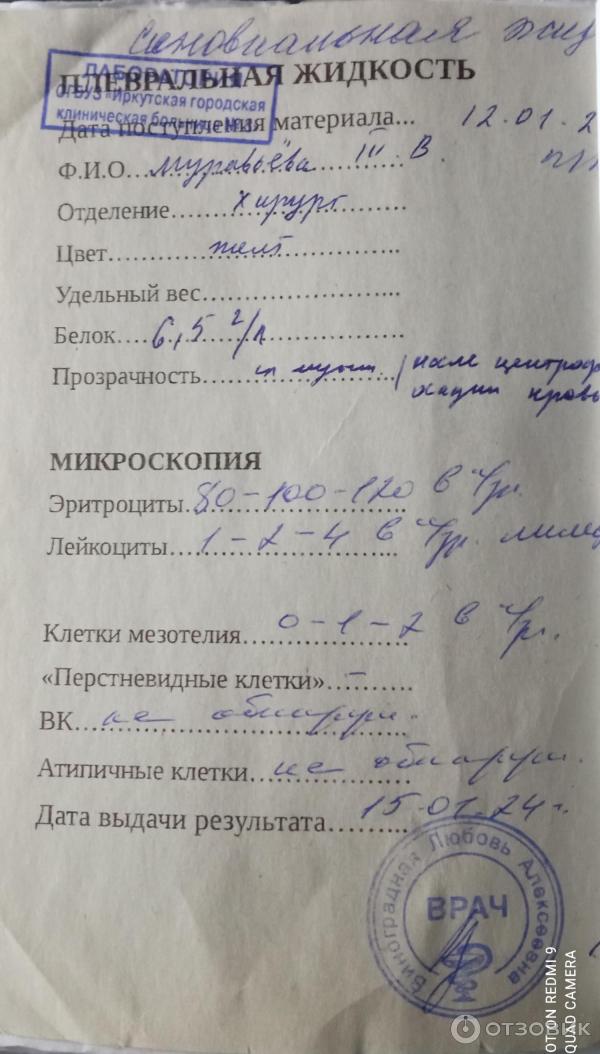 Синовиальная жид
ПЛЕВРАЛЬНАЯ ЖИДКОСТЬ
ЛАБОРАТОРИЯ
ОГБУЗ «Иркутская городская
клиническая больница
Дата поступления материала... 12.01.2
Ф.И.О. Муравьёва III В.
Отделение Хирург
Цвет желт
Удельный вес
Белок 6,5 г/л
Прозрачность / после центрифу
Микроскопия
Эритроциты 80-100-120 в п/зр.
Лейкоциты 1-2-4 в п/зр.
Клетки мезотелия 0-1-2 в п/зр.
«Перстневидные клетки» -
ВК не обнаруж.
Атипичные клетки не обнаруж.
Дата выдачи результата 15.01.24 г.
Виноградная Любовь Алексеевна
ВРАЧ
OTION REDMI 9
QUAD CAMERA
ОТЗОВИК